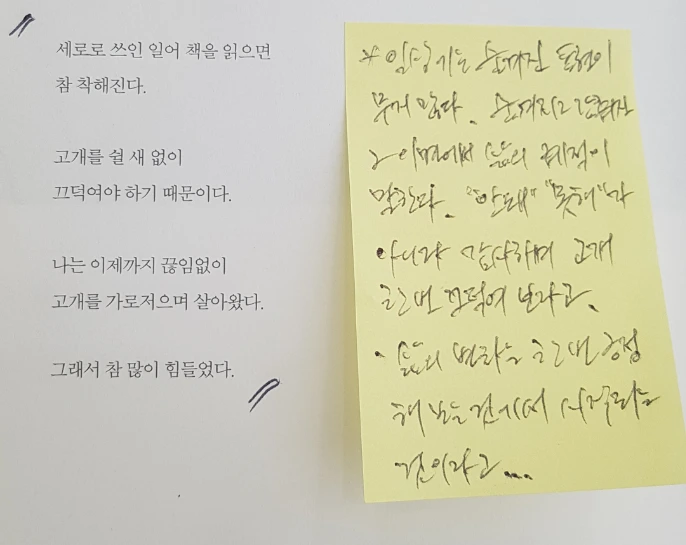 세로로 쓰인 일어 책을 읽으면
참 착해진다.
고개를 쉴 새 없이
끄덕여야 하기 때문이다.
나는 이제까지 끊임없이
고개를 가로저으며 살아왔다.
그래서 참 많이 힘들었다.
* 읽는
무게 있다.
그 이면에서 삶의 궤적이
말한다. "안돼" "못해"가
아니라 감사하며 고개
한번 끄덕여 보라고.
· 삶의 변화는 한번 긍정
해 보는 것에서 시작되는
것이라고...